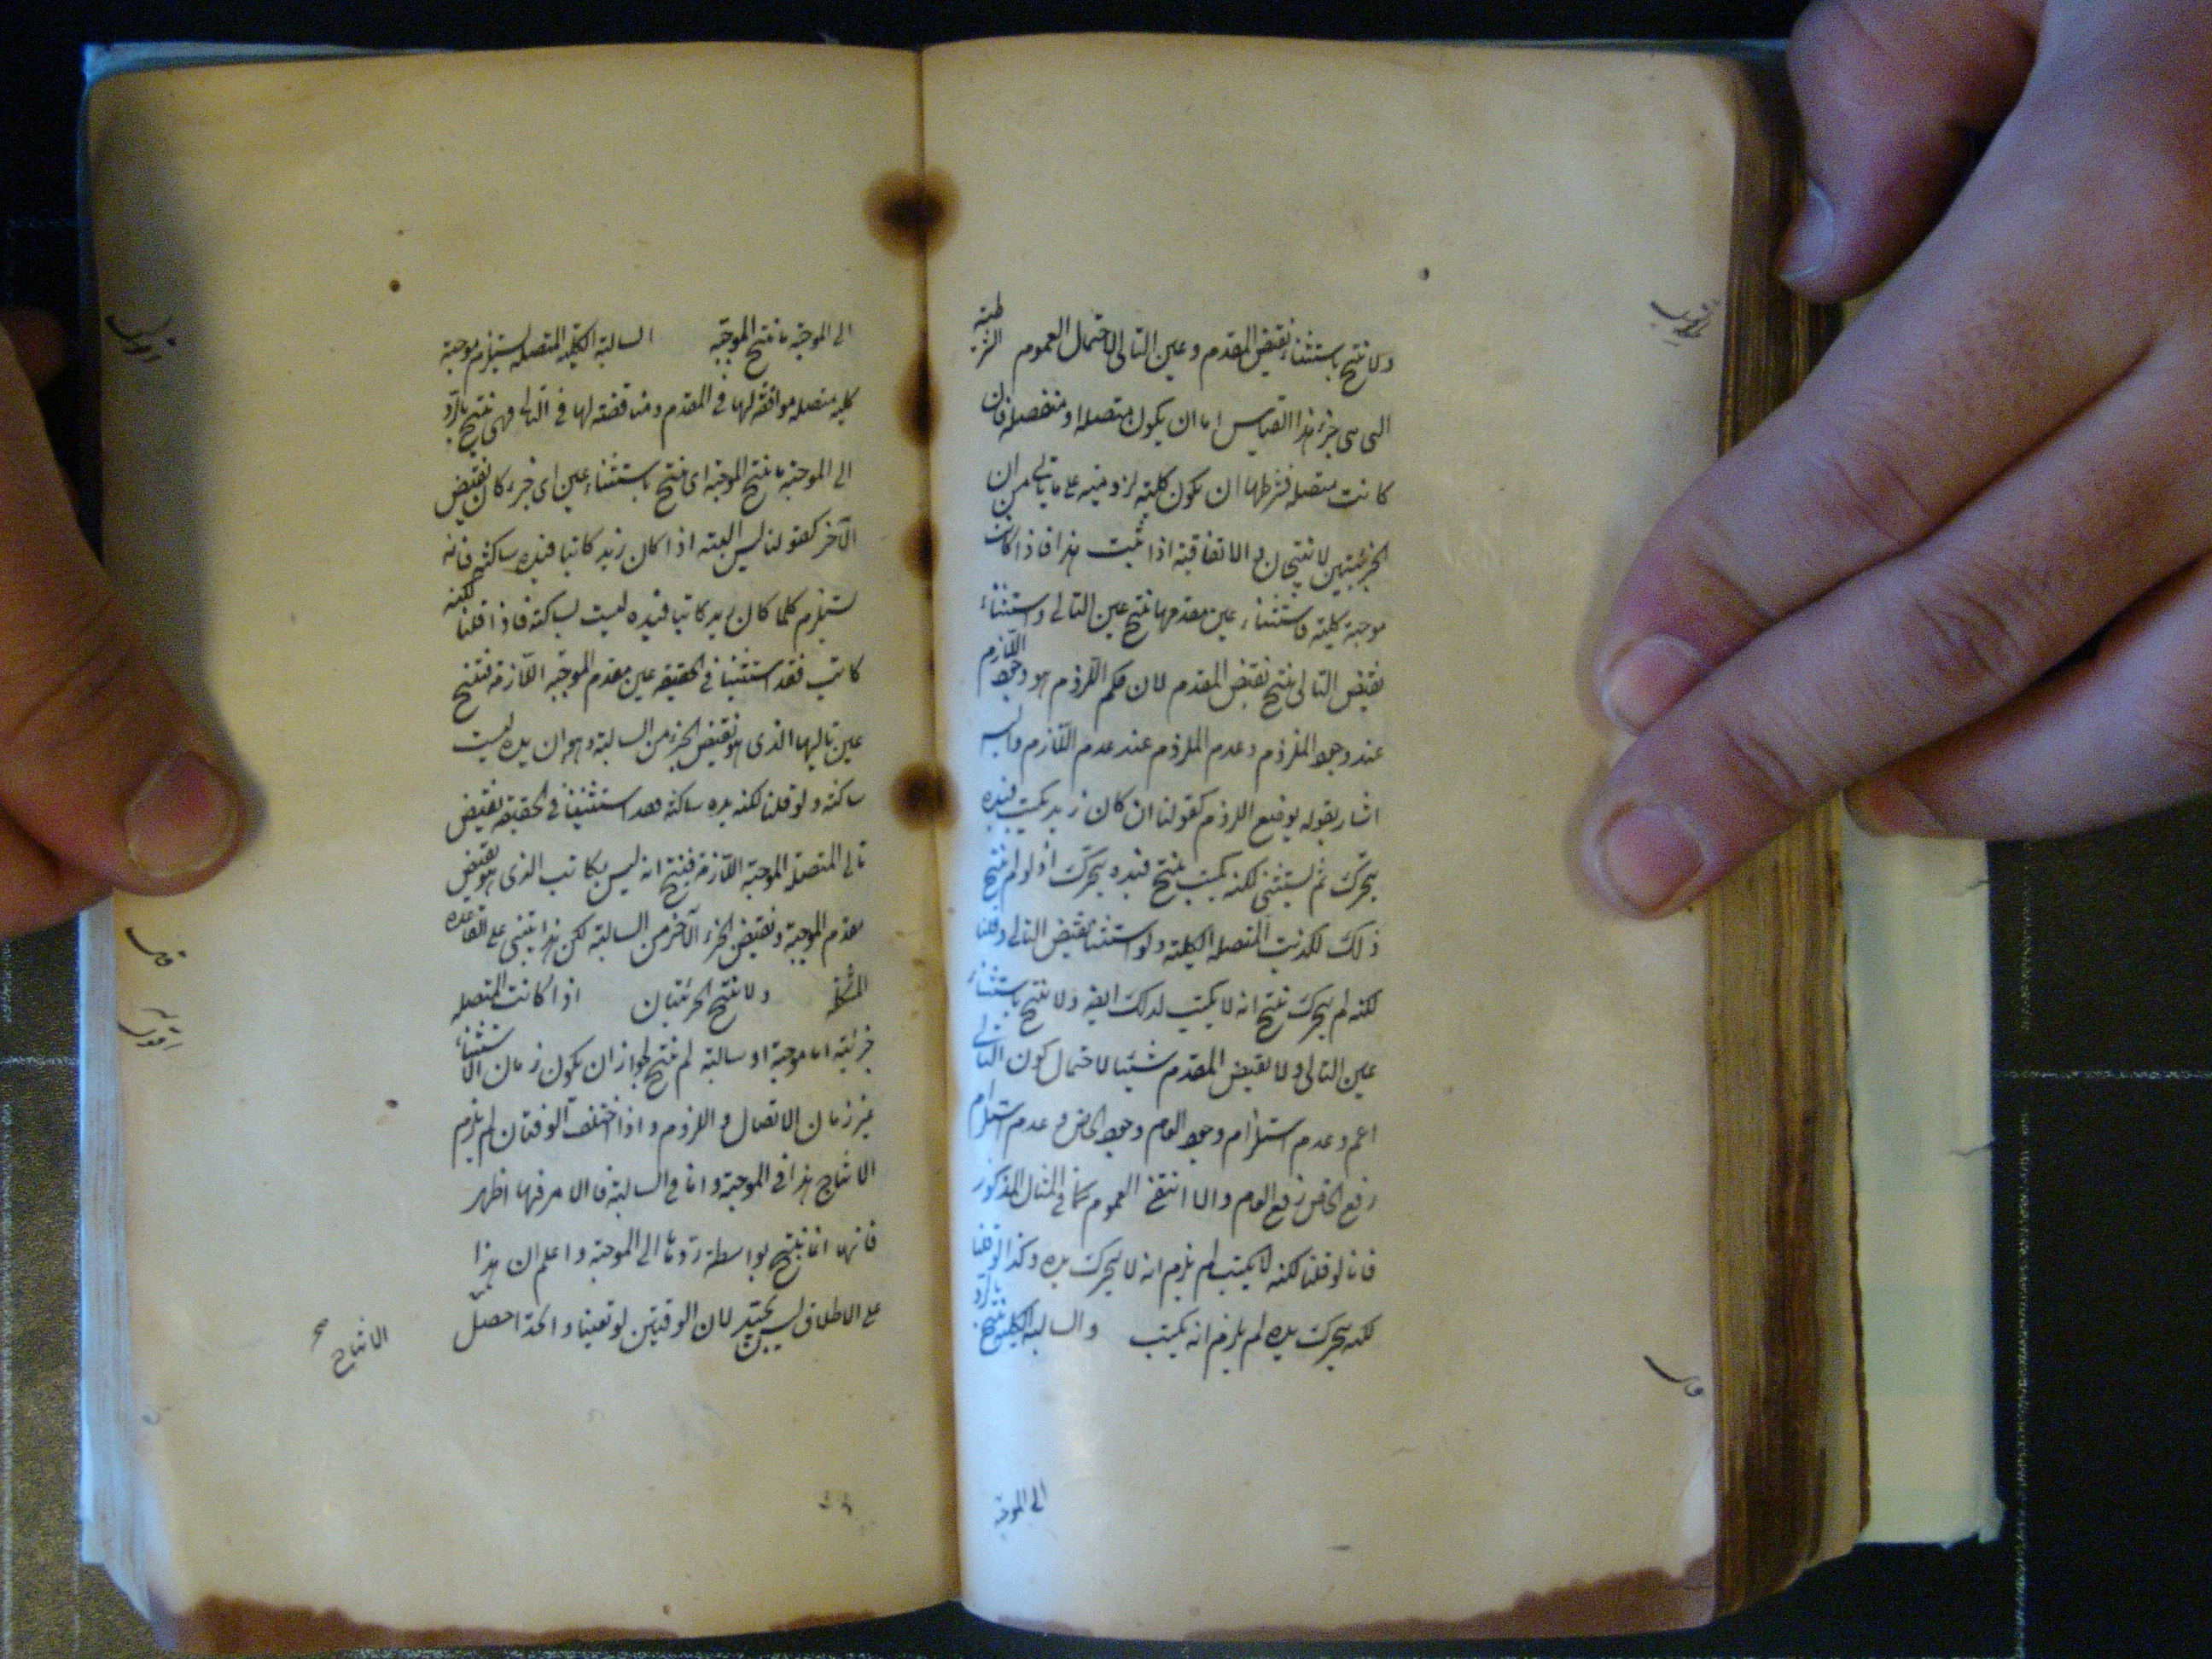 ولا ينتج باستثناء نقيض المقدم وعين التالى لاحتمال العموم الشرطية
التى هى جزء هذا القياس اما ان يكون متصلة او منفصلة فان
كانت متصلة فشرطها ان يكون كلية لزومية على ما ياتى من ان
الجزئيتين لا تنتجان والاتفاقية اذا ثبت هذا فاذا كانت
موجبة كلية فاستثناء عين مقدمها ينتج عين التالى واستثناء
نقيض التالى ينتج نقيض المقدم لان حكم اللزوم هو وجود اللازم
عند وجود الملزوم وعدم الملزوم عند عدم اللازم واليه
اشار بقوله بوضع اللزوم كقولنا ان كان زيد يكتب فيده
يتحرك ثم يستثنى لكنه يكتب ينتج فيده يتحرك اذ لو لم ينتج
ذلك لكذبت المتصلة الكلية ولو استثنينا نقيض التالى وقلنا
لكنه لم يتحرك ينتج انه لا يكتب لذلك ايضا ولا ينتج باستثناء
عين التالى ولا نقيض المقدم شيئا لاحتمال كون التالى
اعم وعدم استلزام وجود العام وجود الخاص وعدم استلزام
رفع الخاص رفع العام والا انتفى العموم كما فى المثال المذكور
فانا لو قلنا لكنه لا يكتب لم يلزم انه لا يتحرك يده وكذا لو قلنا
لكنه يتحرك يده لم يلزم انه يكتب والسالبة الكلية تنتج بالرد
الى الموجبة
الى الموجبة ما تنتج الموجبة السالبة الكلية المتصلة يستلزم موجبة
كلية متصلة موافقة لها فى المقدم ومناقضة لها فى التالى فهى تنتج بالرد
الى الموجبة ما تنتج الموجبة اى تنتج باستثناء عين اى جزء كان نقيض
الآخر كقولنا ليس البتة اذا كان زيد كاتبا فيده ساكنة فانه
يستلزم كلما كان زيد كاتبا فيده ليست بساكنة فاذا قلنا لكنه
كاتب فقد استثنينا فى الحقيقة عين مقدم الموجبة اللازمة فتنتج
عين تاليها الذى هو نقيض الجزء من السالبة وهو ان يده ليست
ساكنة ولو قلنا لكنه يده ساكنة فقد استثنينا فى الحقيقة نقيض
تالى المتصلة الموجبة اللازمة فينتج انه ليس بكاتب الذى هو نقيض
مقدم الموجبة ونقيض الجزء الآخر من السالبة لكن هذا يبتنى على القاعدة
ولا تنتج الجزئيتان اذا كانت المتصلة
جزئية اما موجبة او سالبة لم تنتج لجواز ان يكون زمان الاستثناء
غير زمان الاتصال واللزوم واذا اختلف الوقتان لم يلزم
الانتاج هذا فى الموجبة واما فى السالبة فالامر فيها اظهر
فانها انما تنتج بواسطة ردها الى الموجبة واعلم ان هذا
على الاطلاق ليس بجيد لان الوقتين لو تعينا واتحدا حصل
الانتاج صح